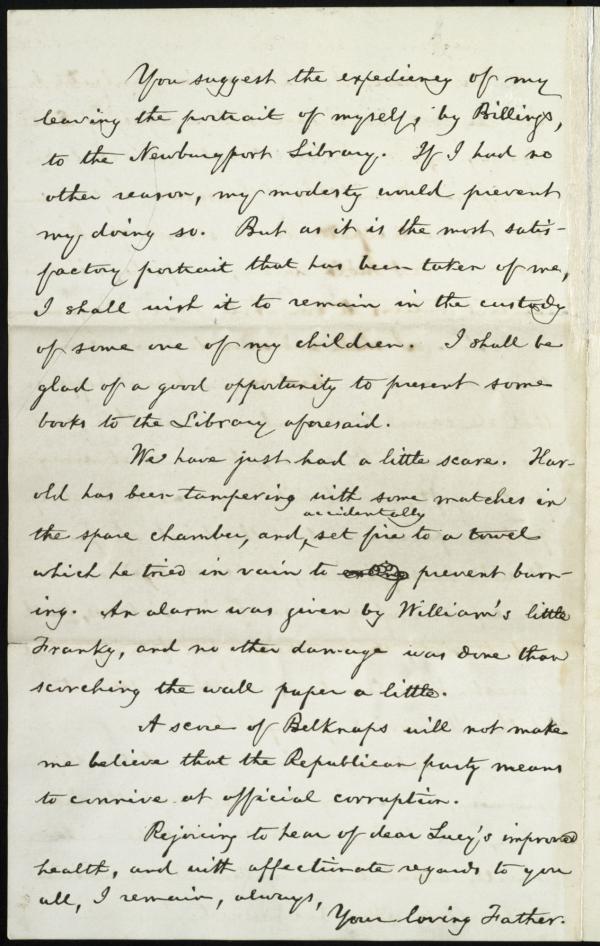 You suggest the expediency of my
leaving the portrait of myself, by Billings,
to the Newburyport Library. If I had no
other reason, my modesty would prevent
my doing so. But as it is the most satis-
factory portrait that has been taken of me,
I shall wish it to remain in the custody
of some one of my children. I shall be
glad of a good opportunity to present some
books to the Library aforesaid.
We have just had a little scare. Har-
old has been tampering with some matches in
accidentally
the spare chamber, and, set fire to a towel
which he tried in vain to prevent burn-
ing. An alarm was given by William's little
Franky, and no other damage was done than
scorching the wall paper a little.
A score of Belknaps will not make
me believe that the Republican party means
to connive at official corruption.
Rejoicing to hear of dear Lucy's improved
health, and with affectionate regards to you
all, I remain, always,
Your loving Father.